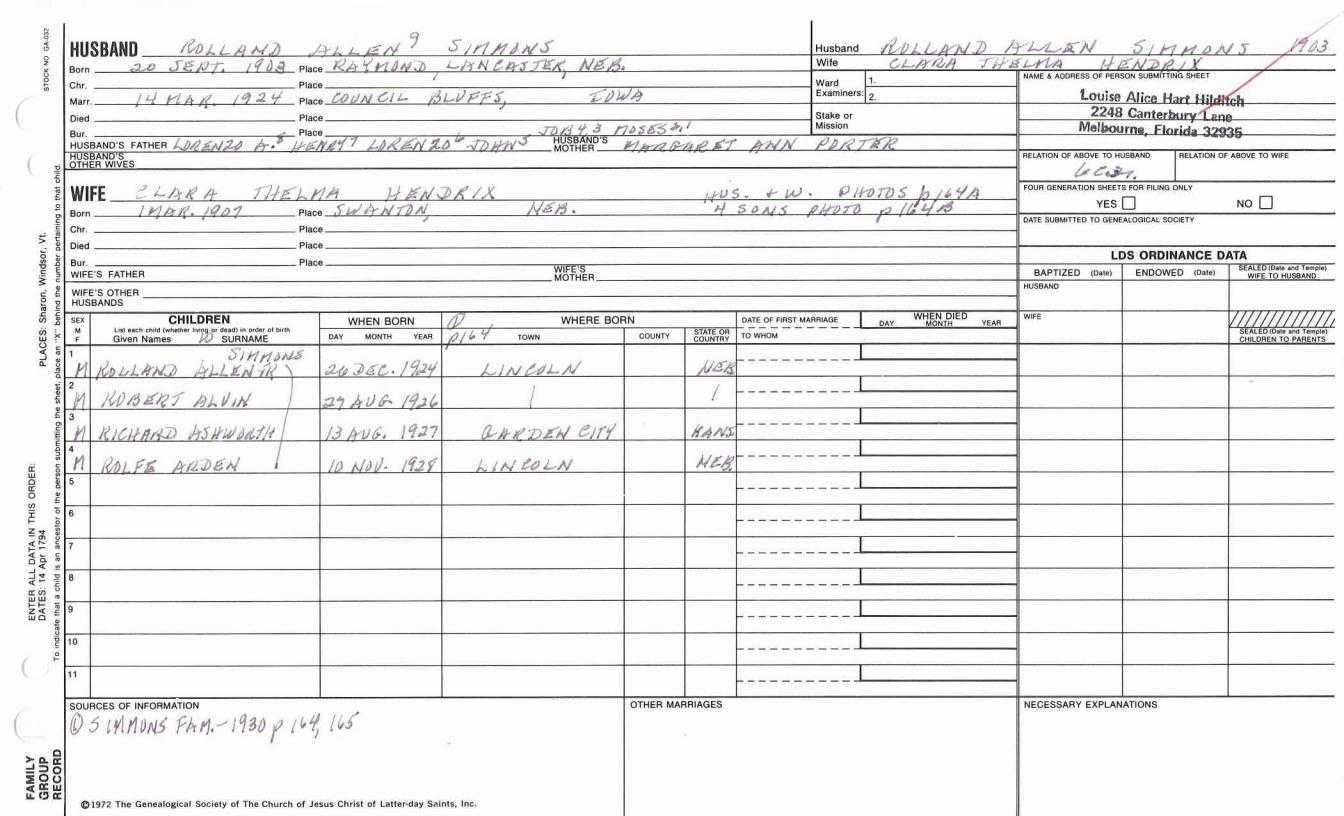 STOCK NO GA-032
HUSBAND ROLLAND ALLEN⁹ SIMMONS
Born 20 SEPT. 1903 Place RAYMOND, LANCASTER, NEB.
Chr. Place
Marr. 14 MAR. 1924 Place COUNCIL BLUFFS, IOWA
Died Place
Bur. Place
JOHN4,3 MOSES2,1
HUSBAND'S FATHER LORENZO A.⁸ HENRY⁷ LORENZO⁶ JOHN⁵ HUSBAND'S MOTHER MARGARET ANN PORTER
HUSBAND'S OTHER WIVES
Husband ROLLAND ALLEN SIMMONS 1903
Wife CLARA THELMA HENDRIX
Ward Examiners: 1.
2.
Stake or Mission
NAME & ADDRESS OF PERSON SUBMITTING SHEET
Louise Alice Hart Hilditch
2248 Canterbury Lane
Melbourne, Florida 32935
RELATION OF ABOVE TO HUSBAND RELATION OF ABOVE TO WIFE
FOUR GENERATION SHEETS FOR FILING ONLY
YES NO
DATE SUBMITTED TO GENEALOGICAL SOCIETY
WIFE CLARA THELMA HENDRIX HUS. + W. PHOTOS p164A
Born 1 MAR. 1907 Place SWANTON, NEB. 4 SONS PHOTO p164B
Chr. Place
Died Place
Bur. Place
WIFE'S FATHER WIFE'S MOTHER
WIFE'S OTHER HUSBANDS
LDS ORDINANCE DATA
BAPTIZED (Date) ENDOWED (Date) SEALED (Date and Temple) WIFE TO HUSBAND
HUSBAND
WIFE
SEALED (Date and Temple) CHILDREN TO PARENTS
SEX M F
CHILDREN
List each child (whether living or dead) in order of birth
Given Names SURNAME
WHEN BORN
DAY MONTH YEAR
p164
WHERE BORN
TOWN COUNTY STATE OR COUNTRY
DATE OF FIRST MARRIAGE
TO WHOM
WHEN DIED
DAY MONTH YEAR
SIMMONS
1 M ROLLAND ALLEN JR 26 DEC. 1924 LINCOLN NEB
2 M ROBERT ALVIN 29 AUG 1926
3 M RICHARD ASHWORTH 13 AUG. 1927 GARDEN CITY KANS
4 M ROLFE ARDEN 10 NOV. 1928 LINCOLN NEB.
5
6
7
8
9
10
11
SOURCES OF INFORMATION
① SIMMONS FAM.-1930 p 164, 165
OTHER MARRIAGES
NECESSARY EXPLANATIONS
©1972 The Genealogical Society of The Church of Jesus Christ of Latter-day Saints, Inc.
FAMILY GROUP RECORD
ENTER ALL DATA IN THIS ORDER:
DATES: 14 Apr 1794
PLACES: Sharon, Windsor, Vt.
To indicate that a child is an ancestor of the person submitting the sheet, place an "X" behind the number pertaining to that child.